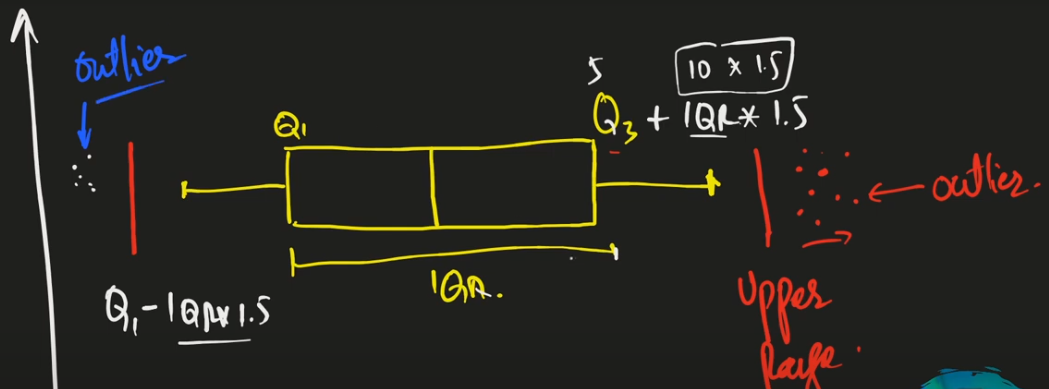 outlier
5
10 * 1.5
Q1
Q3 + IQR * 1.5
outlier.
IQR.
Q1 - IQR * 1.5
Upper
Range.